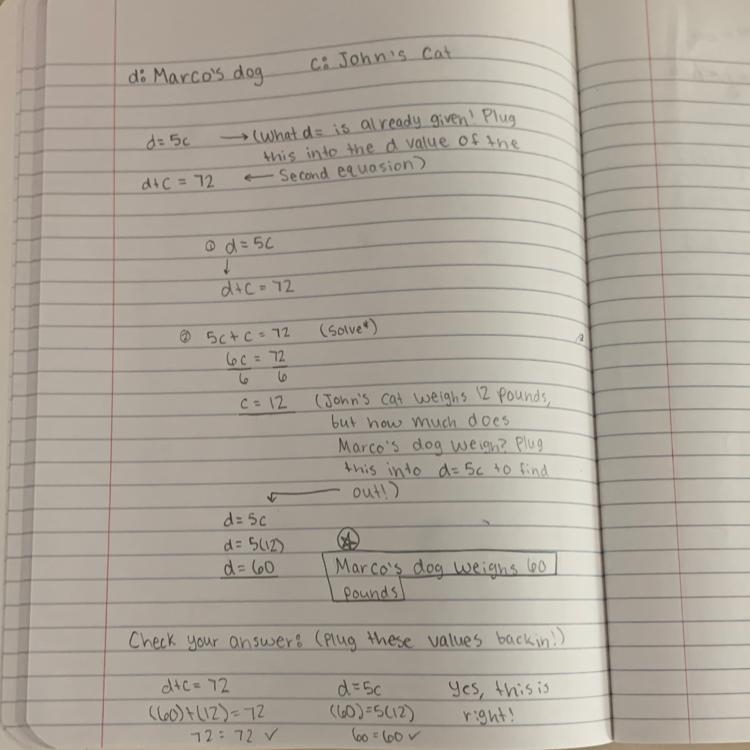 d: Marco's dog c: John's cat
d=5c → (What d= is already given! Plug
this into the d value of the
d+c = 72 ← Second equasion)
① d=5c
↓
d+c = 72
② 5c+c = 72 (Solve*)
6c = 72
6 6
c = 12 (John's cat weighs 12 pounds,
but how much does
Marco's dog weigh? Plug
this into d=5c to find
out!)
d=5c
d=5(12)
d=60 Marco's dog weighs 60
pounds
Check your answer: (Plug these values back in!)
d+c = 72 d=5c Yes, this is
(60)+(12)=72 (60)=5(12) right!
72=72 ✓ 60=60 ✓